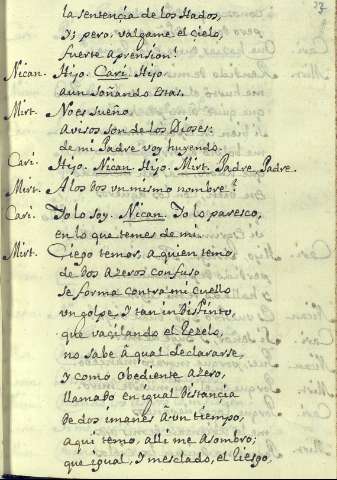 27
la sentençia de los Hados,
y; pero, valgame el çielo,
fuerte aprension!
Nican. Hijo. Cari. Hijo
aun soñando estas.
Mirt. No es sueño
avisos son de los Dioses:
de mi Padre voy huyendo.
Cari. Hijo. Nican. Hijo. Mirt. Padre, Padre.
Mirt. A los dos un mismo nombre?
Cari. Yo lo soy. Nican. Yo lo paresco,
en lo que temes de mi.
Mirt. Ciego temor, a quien temo
de dos azeros confuso
se forma contra mi cuello
un golpe, y tan indistinto,
que vaçilando el rezelo,
no sabe â qual declararse,
y como obediente azero,
llamado en igual distançia
de dos imanes â un tiempo,
aqui temo, alli me asombro;
que igual, y mesclado, el riesgo,